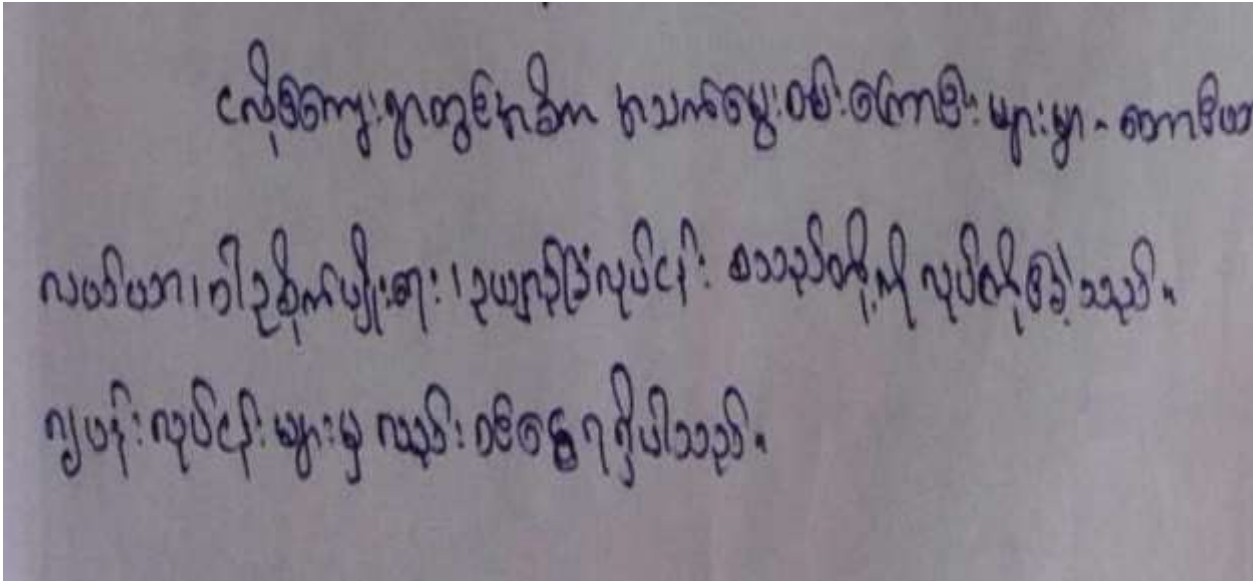 လိုင်ကျေးရွာတွင်အဓိက အသက်မွေးဝမ်းကြောင်း များမှာ - တောင်ယာ
လယ်ယာ၊ ဝါဥစိုက်ပျိုးရေး၊ ဥယျာဉ်ခြံလုပ်ငန်း စသည်တို့ကို လုပ်ကိုင်ခဲ့သည်။
ကျပန်းလုပ်ငန်းများမှ လည်းဝင်ငွေရရှိပါသည်။